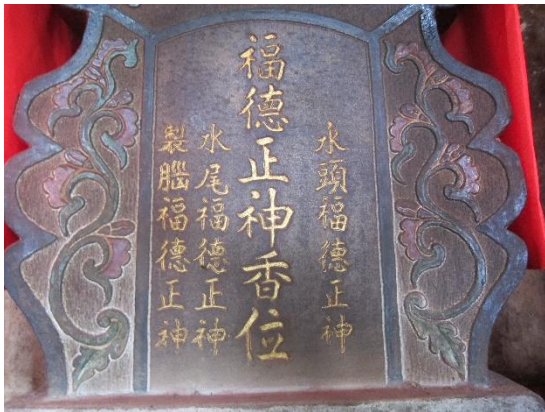 水頭福德正神
福德正神香位
水尾福德正神
製腦福德正神